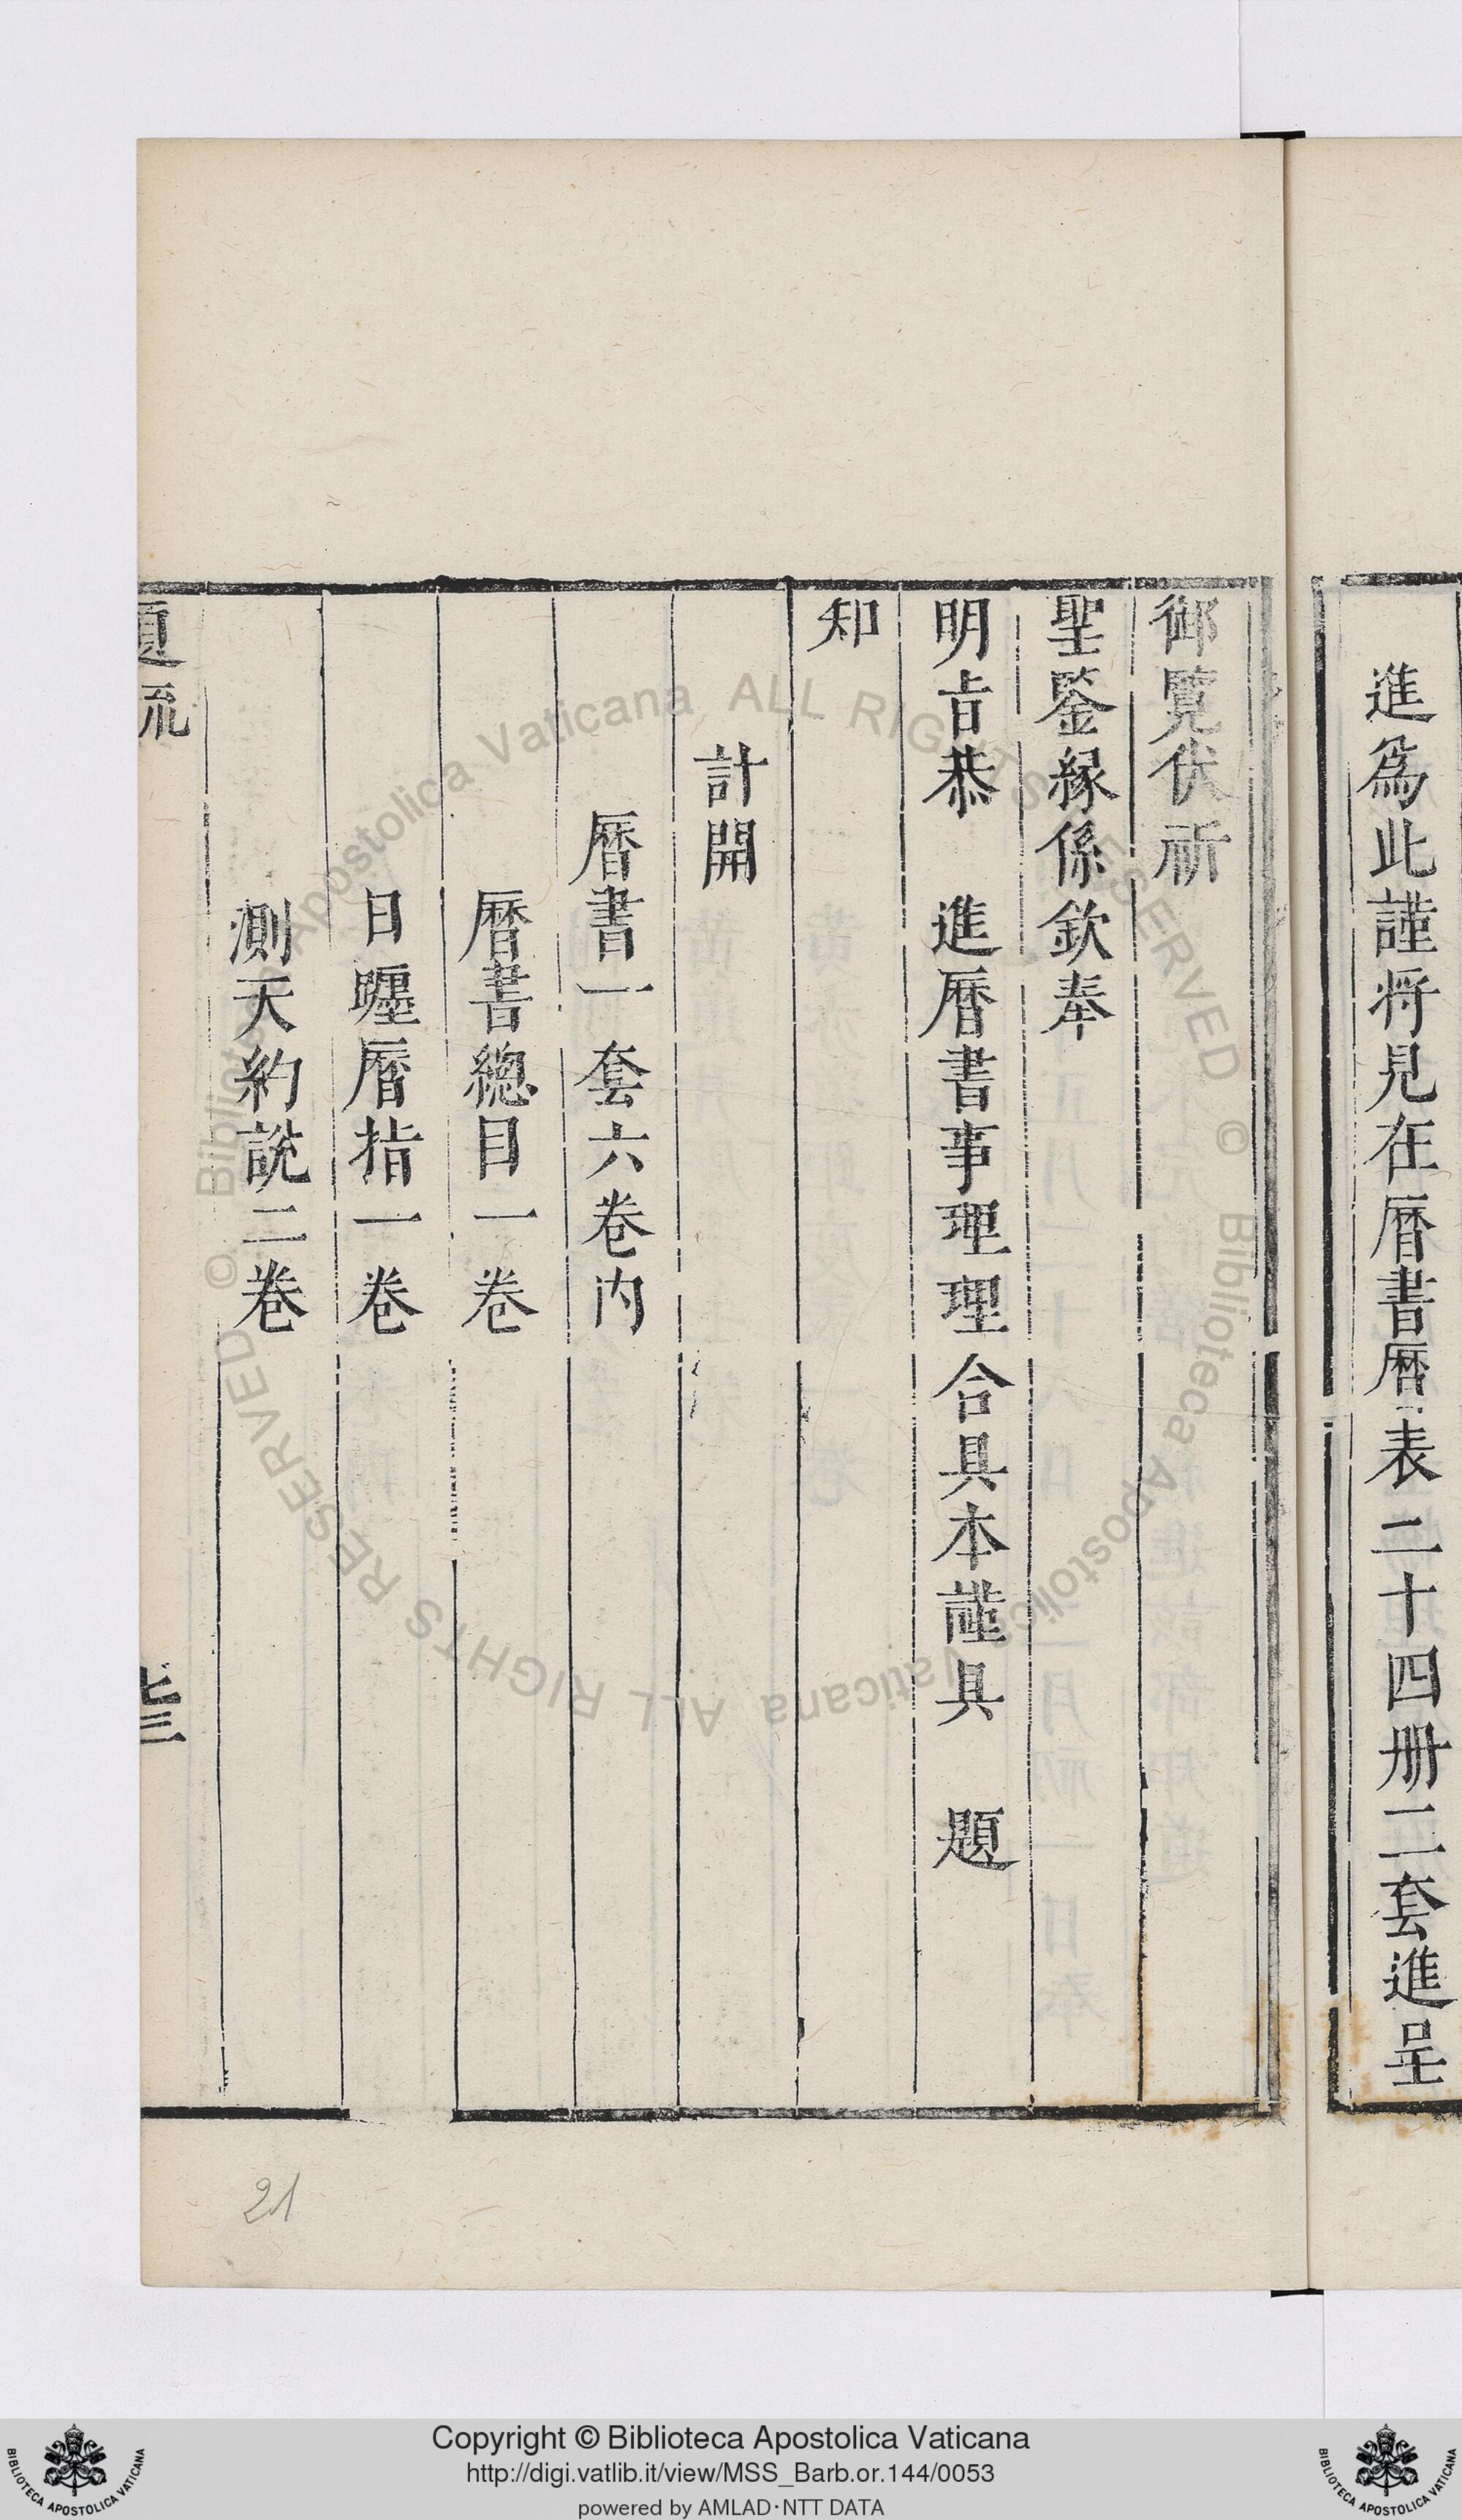 進爲此謹將見在曆書曆表二十四册二套進呈
御覽伏祈
聖鑒緣係欽奉
明旨恭　進曆書事理理合具本謹具　題
知
計開
曆書一套六卷內
曆書總目一卷
日躔曆指一卷
測天約說二卷
21
© Biblioteca Apostolica Vaticana ALL RIGHTS RESERVED
© Biblioteca Apostolica Vaticana ALL RIGHTS RESERVED
Copyright © Biblioteca Apostolica Vaticana
http://digi.vatlib.it/view/MSS_Barb.or.144/0053
powered by AMLAD·NTT DATA
BIBLIOTECA APOSTOLICA VATICANA
BIBLIOTECA APOSTOLICA VATICANA